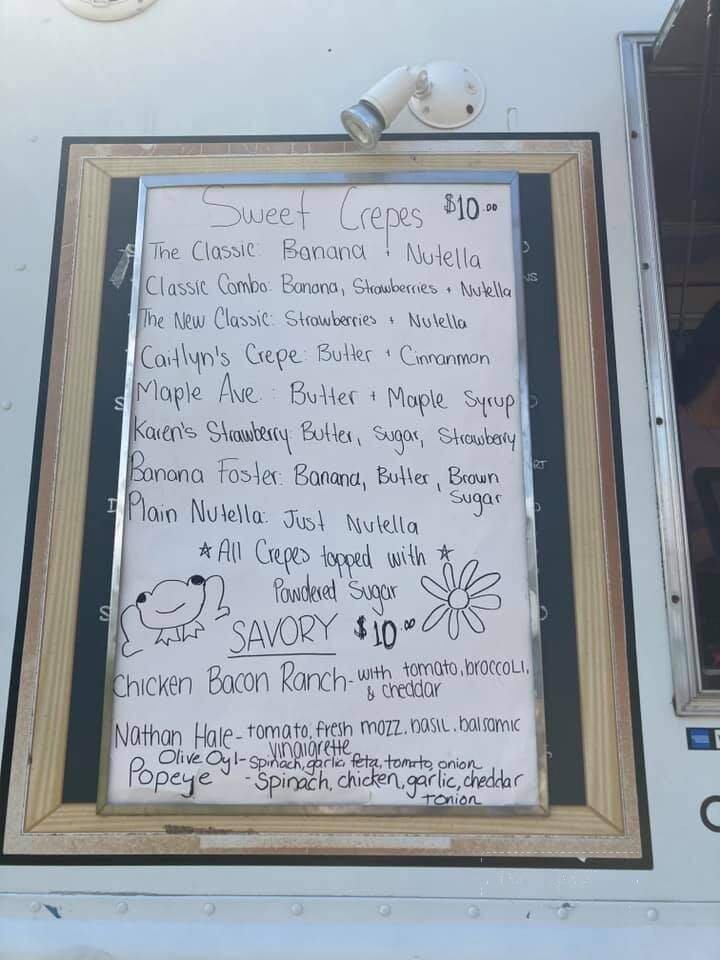 Sweet Crepes $10.00
The Classic: Banana + Nutella
Classic Combo: Banana, Strawberries + Nutella
The New Classic: Strawberries + Nutella
Caitlyn's Crepe: Butter + Cinnanmon
Maple Ave. : Butter + Maple Syrup
Karen's Strawberry: Butter, Sugar, Strawberry
Banana Foster: Banana, Butter, Brown
Sugar
Plain Nutella: Just Nutella
☆ All Crepes topped with ☆
Powdered Sugar
SAVORY $10.00
Chicken Bacon Ranch - with tomato, broccoli,
& cheddar
Nathan Hale - tomato, fresh mozz. basil. balsamic
vinaigrette
Olive Oyl - Spinach, garlic feta, tomato, onion
Popeye - Spinach, chicken, garlic, cheddar
+ onion